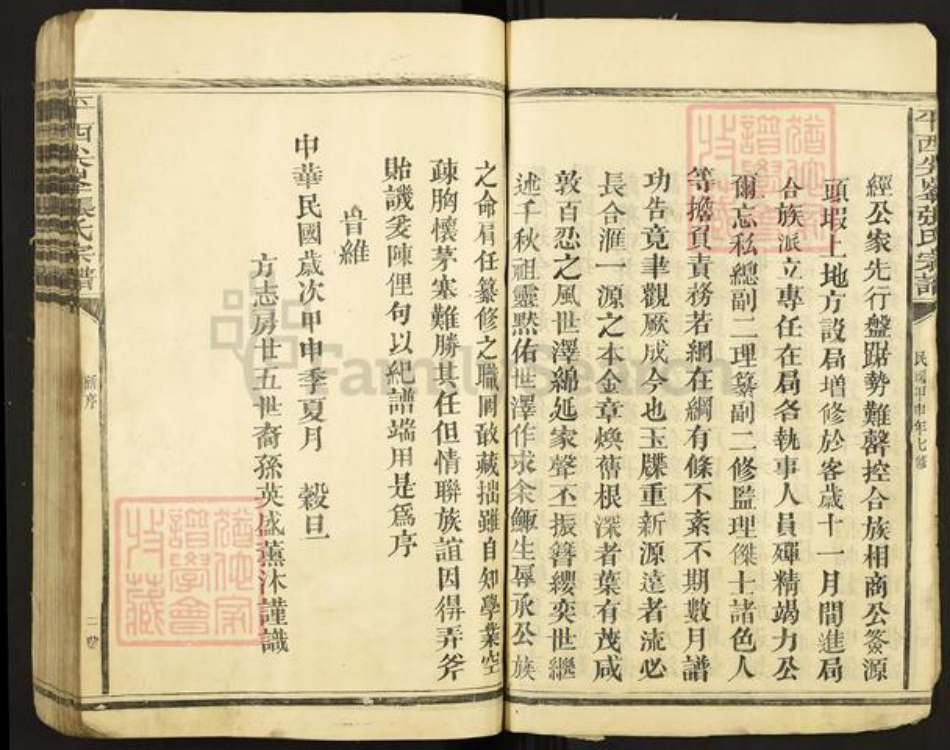 平西尖峯張氏宗譜
民國甲申年七修
經公家先行盤踞勢難罄控合族相商公簽源
頭塅上地方設局增修於客歲十一月間進局
合族派立專任在局各執事人員殫精竭力公
爾忘私總副二理纂副二修監理傑士諸色人
等擔負責務若網在綱有條不紊不期數月譜
功告竟聿觀厥成今也玉牒重新源遠者流必
長合滙一源之本金章煥舊根深者葉有茂咸
敦百忍之風世澤綿延家聲丕振簪纓奕世繼
述千秋祖靈黙佑世澤作求余鯫生辱承公族
之命肩任纂修之職罔敢藏拙雖自知學業空
疎胸懷茅塞難勝其任但情聯族誼因得弄斧
貽譏爰陳俚句以紀譜端用是爲序
旹維
中華民國歲次甲申季夏月 穀旦
方志房廿五世裔孫英盛薰沐謹識
平西尖峯張氏宗譜
序
FamilySearch
譜學會
收藏
譜學會
收藏